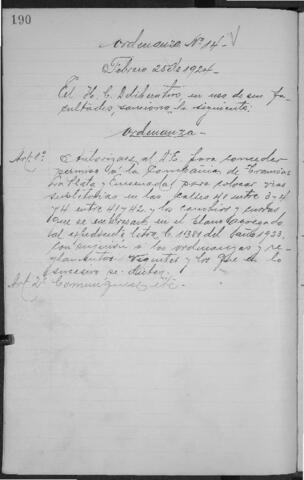 190
Ordenanza Nº 14
Febrero 25 de 1924
El H. C. Deliberante, en uso de sus fa-
cultades, sanciona la siguiente:
Ordenanza
Art. 1º Autorízase al D.E. para conceder
permiso a la Compañía de Tranvías
La Plata y Ensenada para colocar vías
en las calles 41 entre 3 y 4
y 4 entre 41 y 42 y los cambios y curvas
que se en el plano agregado
al expediente letra C 11381 del año 1923,
con sujeción a las ordenanzas y re-
glamentos vigentes y los que en lo
sucesivo se dicten.
Art. 2º Comuníquese, etc.